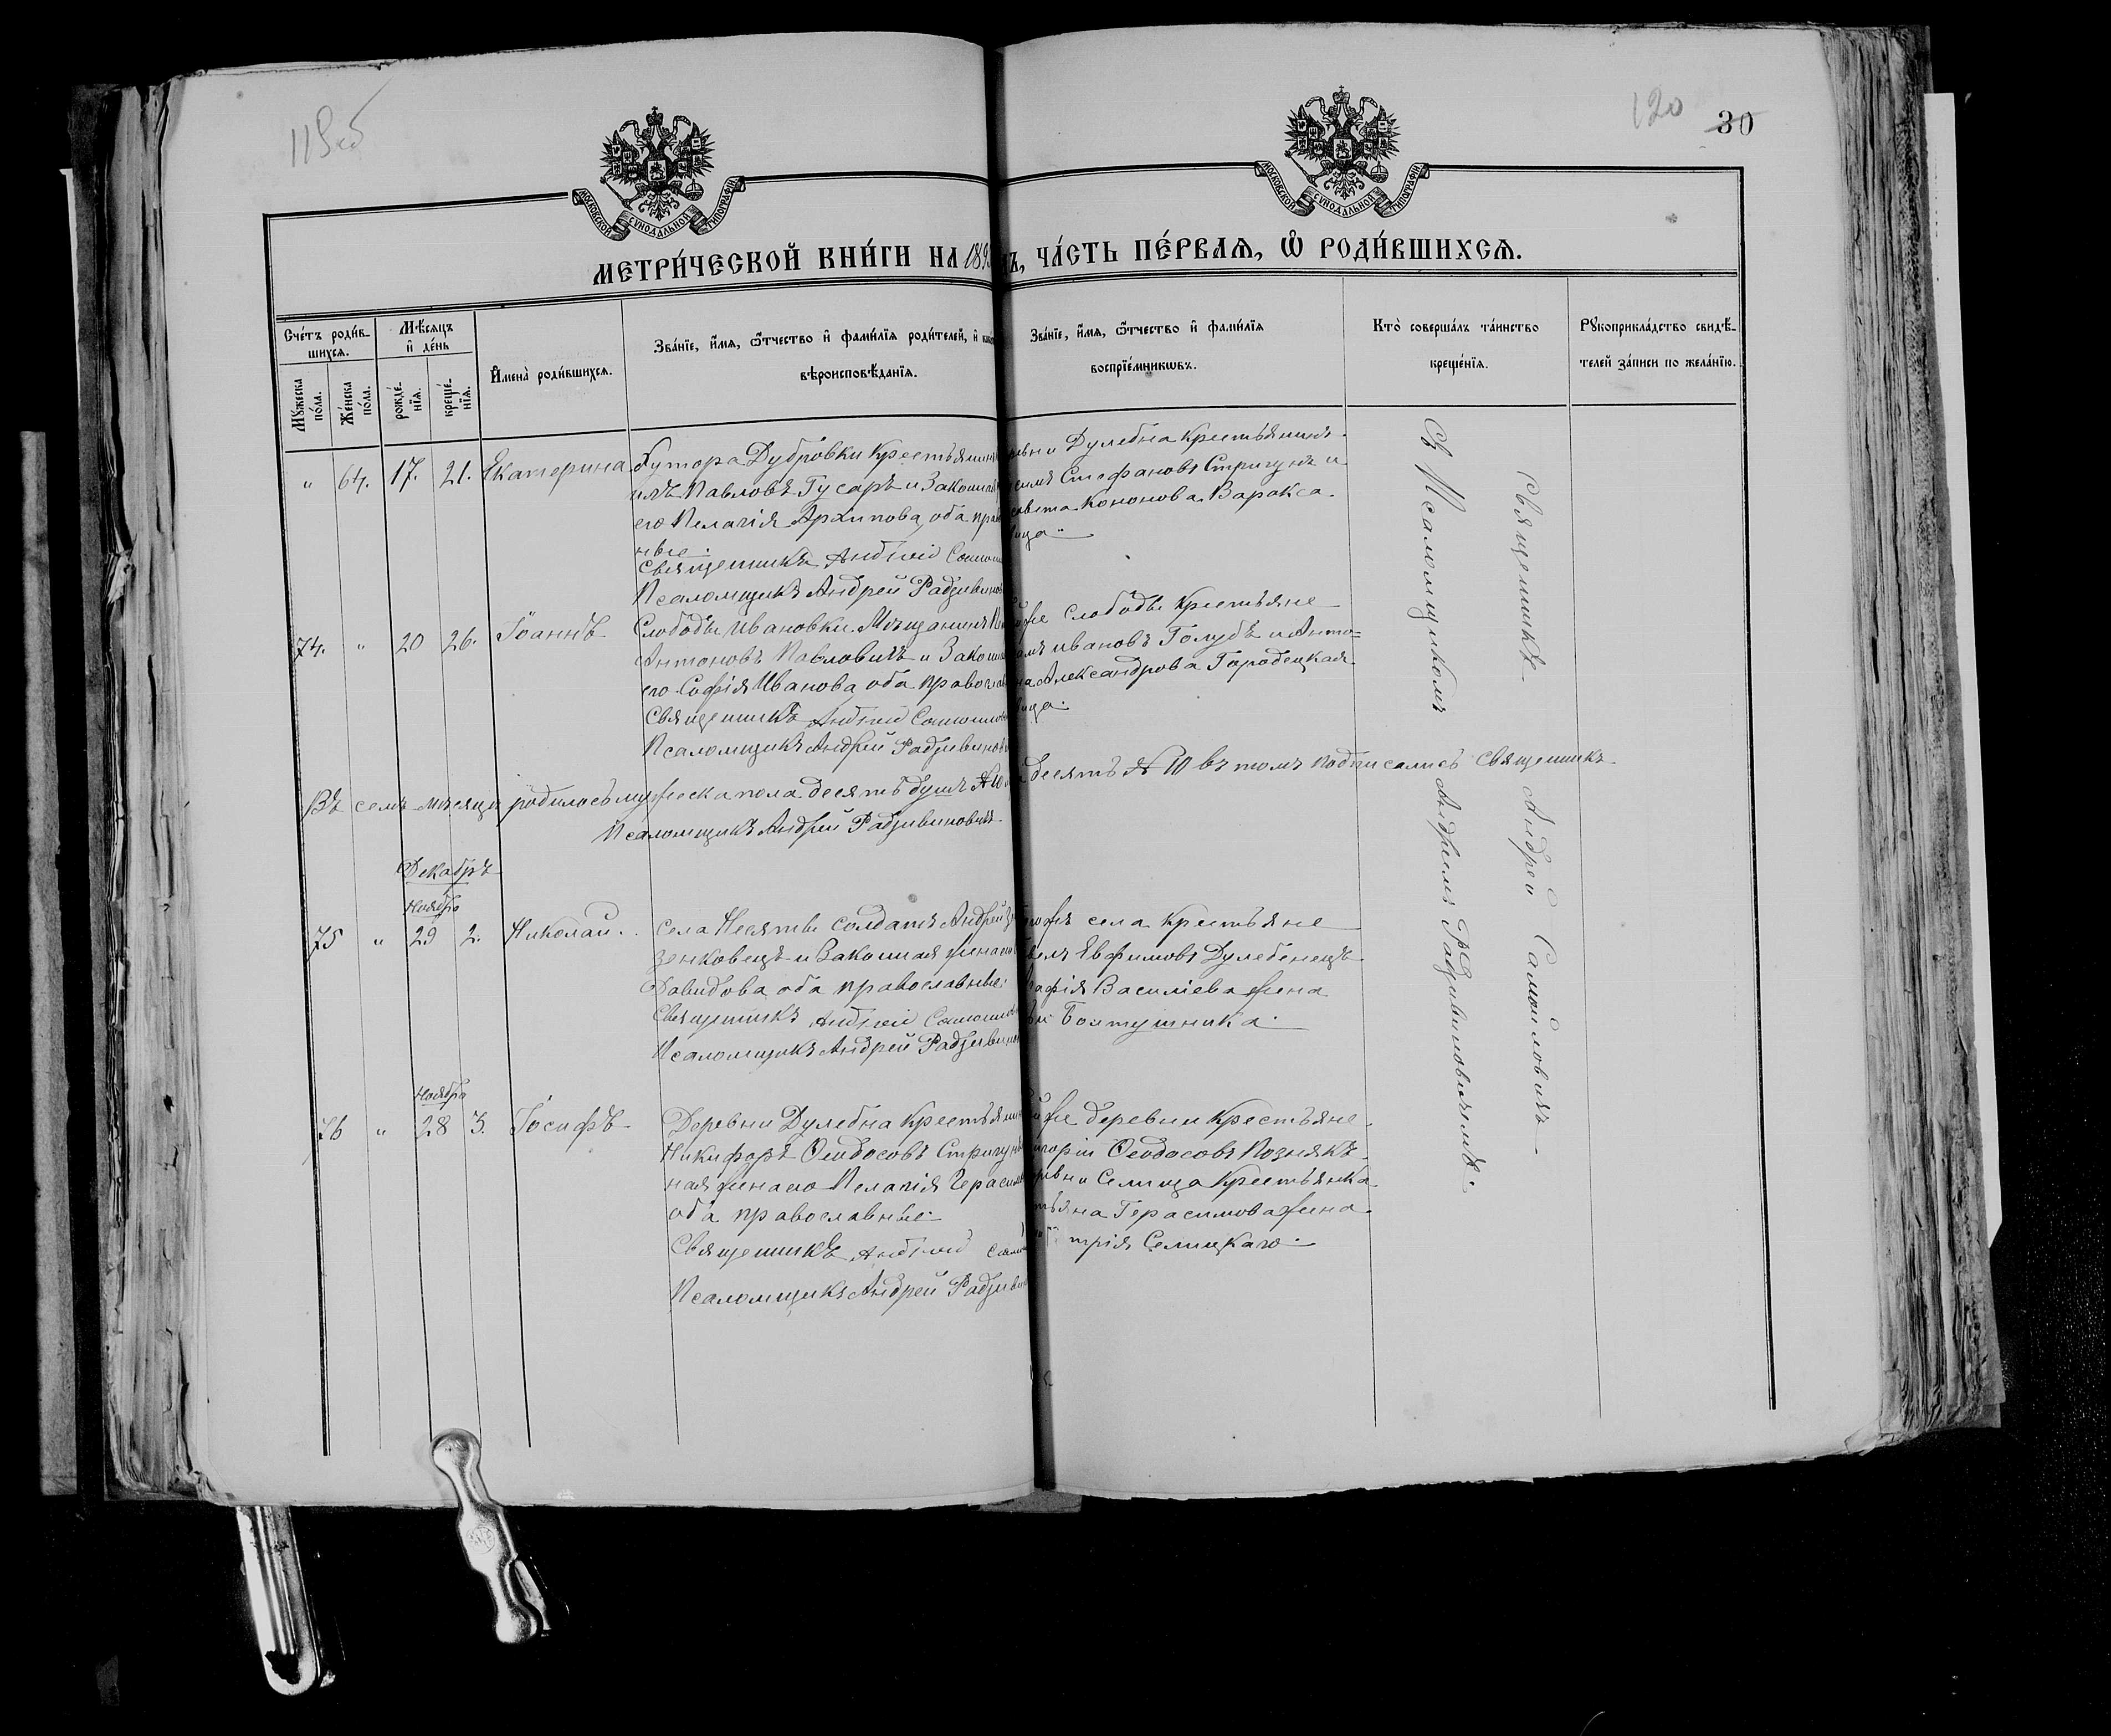 119об
120
30
МОСКОВСКОЙ СѴНОДАЛЬНОЙ ТИПОГРАФІИ
МОСКОВСКОЙ СѴНОДАЛЬНОЙ ТИПОГРАФІИ
МЕТРИ́ЧЕСКОЙ КНИ́ГИ НА 189
Ъ, ЧА́СТЬ ПЕ́РВАѦ, Ѡ҆ РОДИ́ВШИХСѦ.
Сче́тъ роди́в-
шихсѧ.
Мꙋжеска по́ла.
Же́нска по́ла.
Мѣ́сѧцъ и҆ де́нь
рожде́-нїѧ.
креще́-нїѧ.
И҆мена̀ роди́вшихсѧ.
Зва́нїе, и҆́мѧ, ѻ҆́тчество и҆ фами́лїѧ роди́телей, и҆
вѣроисповѣ́данїѧ.
Зва́нїе, и҆́мѧ, ѻ҆́тчество и҆ фами́лїѧ
воспрїе́мникѡвъ.
Кто̀ соверша́лъ та́инство
креще́нїѧ.
Рꙋкоприкла́дство свидѣ́-
телей за́писи по жела́нїю.
" 64. 17. 21. Екатерина
Хутора Дубровки Крестьянинъ
Павловъ Гусаръ и Законная
его Пелагія Архипова, оба
ные.
Священникъ Андрей
Псаломщикъ Андрей Радзивинов
Дулебна Крестьянинъ
Стефановъ Стригунъ и
КононоваВаракса.
ица.
74. " 20 26. Іоаннъ
Слободы Ивановки. Мѣщанинъ
Антоновъ Павловичъ и Закон
его Софія Иванова оба православ
Священникъ Андрей
Псаломщикъ Андрей Радзивинов
же Слободы Крестьяне
Ивановъ Голубъ и Анто=
на Александрова Городецкая
ица.
Въ семъ мѣсяцѣ родилось мужеска пола десять душъ № 10
десять № 10 въ томъ подписались Священникъ
Псаломщикъ Андрей Радзивиновичъ
Декабрь
Ноября
75 " 29 2. Николай.
Села Несяты Солдатъ Андрей
зенковецъ и Законная жена его
Давидова оба православные:
Священникъ Андрей
Псаломщикъ Андрей Радзивин
села Крестьяне
Евфимовъ Дулебенецъ
Василіева жена
Болтушника.
Ноября
76 " 28 3. Іосифъ
Деревни Дулебна Крестьянин
Никифоръ Ѳеодосовъ Стригунъ
ная жена его Пелагія Герасим
оба православные.
Священникъ Андрей
Псаломщикъ Андрей Радзиви
же деревни Крестьяне
Ѳеодосовъ Познякъ.
Селища Крестьянка
Герасимова жена
трія Селицкаго.
Съ Псаломщикомъ Андреемъ Радзивиновичемъ.
Священникъ Андрей Самойловичъ